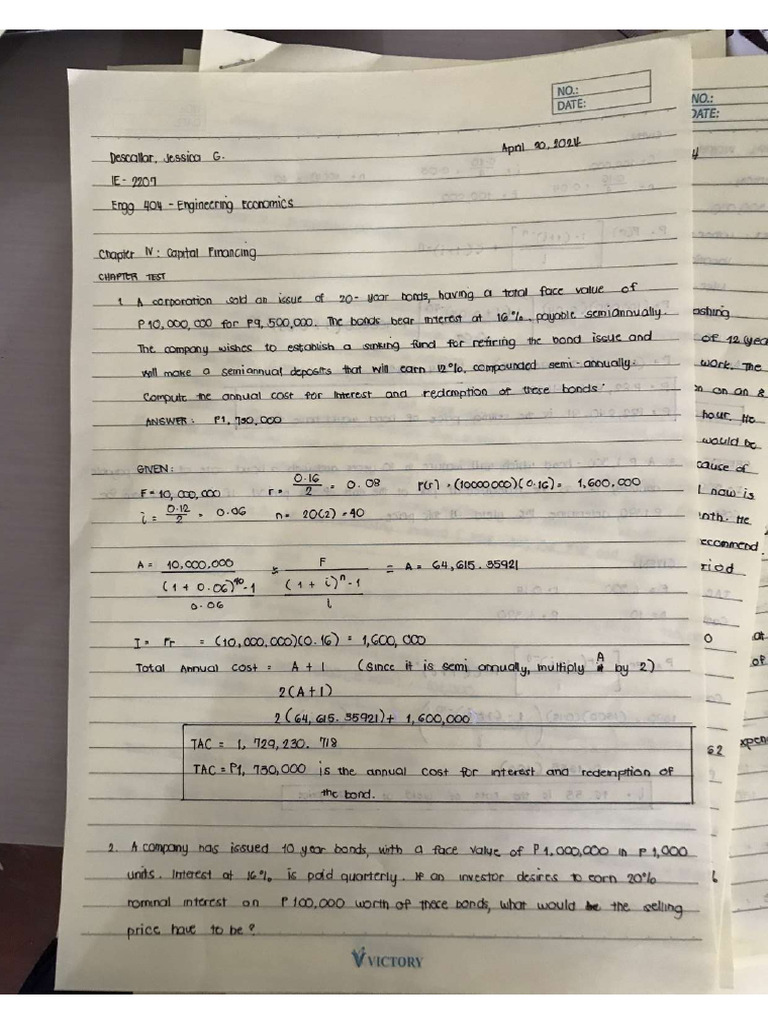 NO.:
DATE:
NO.:
DATE:
Descallar, Jessica G.
April 20, 2024
IE - 2207
Engg 404 - Engineering Economics
Chapter IV: Capital Financing
CHAPTER TEST
1. A corporation sold an issue of 20-year bonds, having a total face value of
P10,000,000 for P9,500,000. The bonds bear interest at 16%, payable semiannually.
The company wishes to establish a sinking fund for retiring the bond issue and
will make a semiannual deposits that will earn 12%, compounded semi-annually.
Compute the annual cost for interest and redemption of these bonds.
ANSWER: P1,730,000
GIVEN:
F = 10,000,000 r = 0.16/2 = 0.08 F(r) = (10000000)(0.16) = 1,600,000
i = 0.12/2 = 0.06 n = 20(2) = 40
A = 10,000,000 F = A = 64,615.35921
(1 + 0.06)^40 - 1 (1 + i)^n - 1
0.06 i
I = Fr = (10,000,000)(0.16) = 1,600,000
Total Annual Cost = A + I (Since it is semi annually, multiply A by 2)
2(A+I)
2(64,615.35921) + 1,600,000
TAC = 1,729,230.718
TAC = P1,730,000 is the annual cost for interest and redemption of
the bond.
2. A company has issued 10 year bonds, with a face value of P1,000,000 in P1,000
units. Interest at 16% is paid quarterly. If an investor desires to earn 20%
nominal interest on P100,000 worth of these bonds, what would be the selling
price have to be?
VICTORY
of 12 (yea
work. The
on an 8
hour. He
would be
cause of
I now is
nth. He
recommend.
riod
0
at
of
62